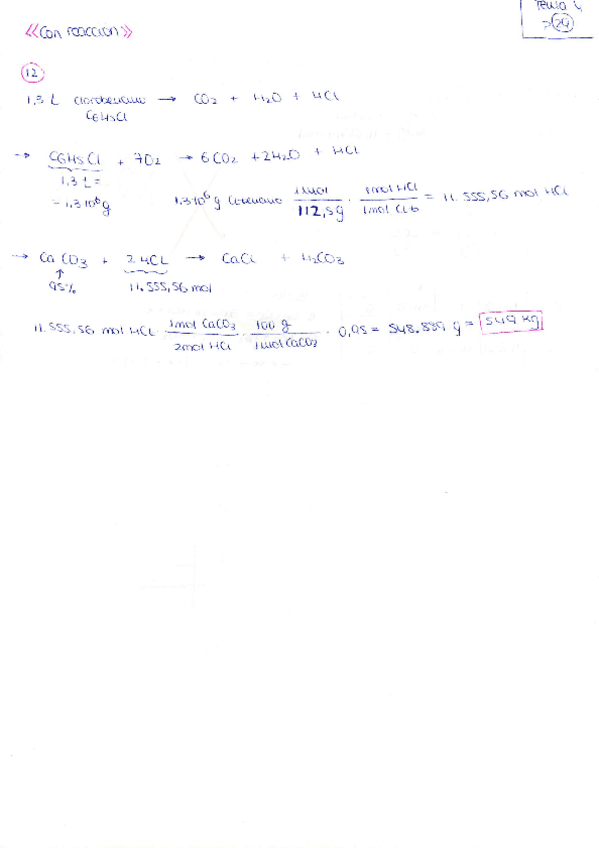 Tema 4
> 24
<<Con reaccion>>
12
1,3 L clorobenceno → CO2 + H2O + HCl
C6H5Cl
→ C6H5Cl + 7O2 → 6CO2 + 2H2O + HCl
1,3 L =
= 1,3·10⁶g
1,3·10⁶ g 1mol / 112,5g · 1mol HCl / 1mol Clb = 11.555,56 mol HCl
→ CaCO3 + 2 HCL → CaCl + H2CO3
95% 11.555,56 mol
11.555,56 mol HCl · 1mol CaCO3 / 2mol HCl · 100 g / 1mol CaCO3 · 0,95 = 548.889 g = 549 kg